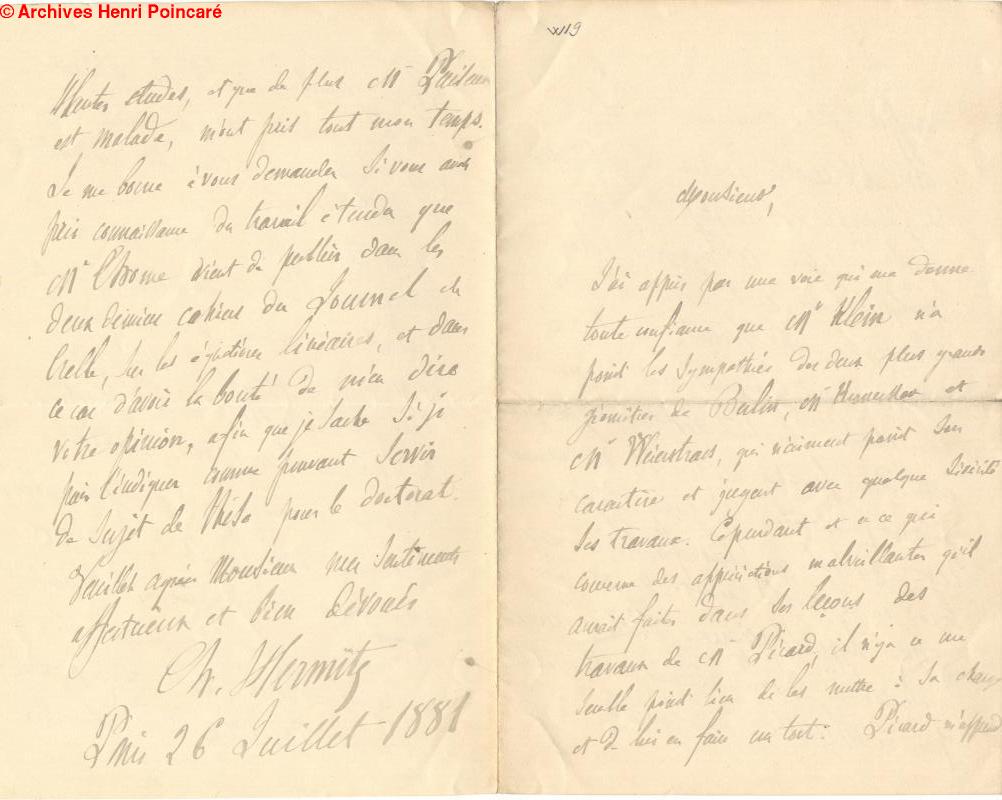 © Archives Henri Poincaré
W19
Hautes études, et que de plus Mr
est malade, m'ont pris tout mon temps.
Je me borne à vous demander si vous avez
pris connaissance du travail étendu que
Mr Thome vient de publier dans les
deux derniers cahiers du Journal de
Crelle, sur les équations linéaires, et dans
ce cas d'avoir la bonté de m'en dire
votre opinion, afin que je sache si je
puis l'indiquer comme pouvant servir
de sujet de thèse pour le doctorat.
Veuillez agréer Monsieur mes sentiments
affectueux et bien dévoués
Ch. Hermite
Paris 26 Juillet 1881
Monsieur,
J'ai appris par une voie qui me donne
toute confiance que Mr Klein n'a
point les sympathies des deux plus grands
géomètres de Berlin, Mr Kronecker et
Mr Weierstrass, qui n'aiment point son
caractère et jugent avec quelque sévérité
ses travaux. Cependant et en ce qui
concerne des appréciations malveillantes qu'il
aurait faites dans ses leçons des
travaux de Mr Picard, il n'y a ce me
semble point lieu de les mettre à sa charge
et de lui en faire un tort: Picard m'apprend